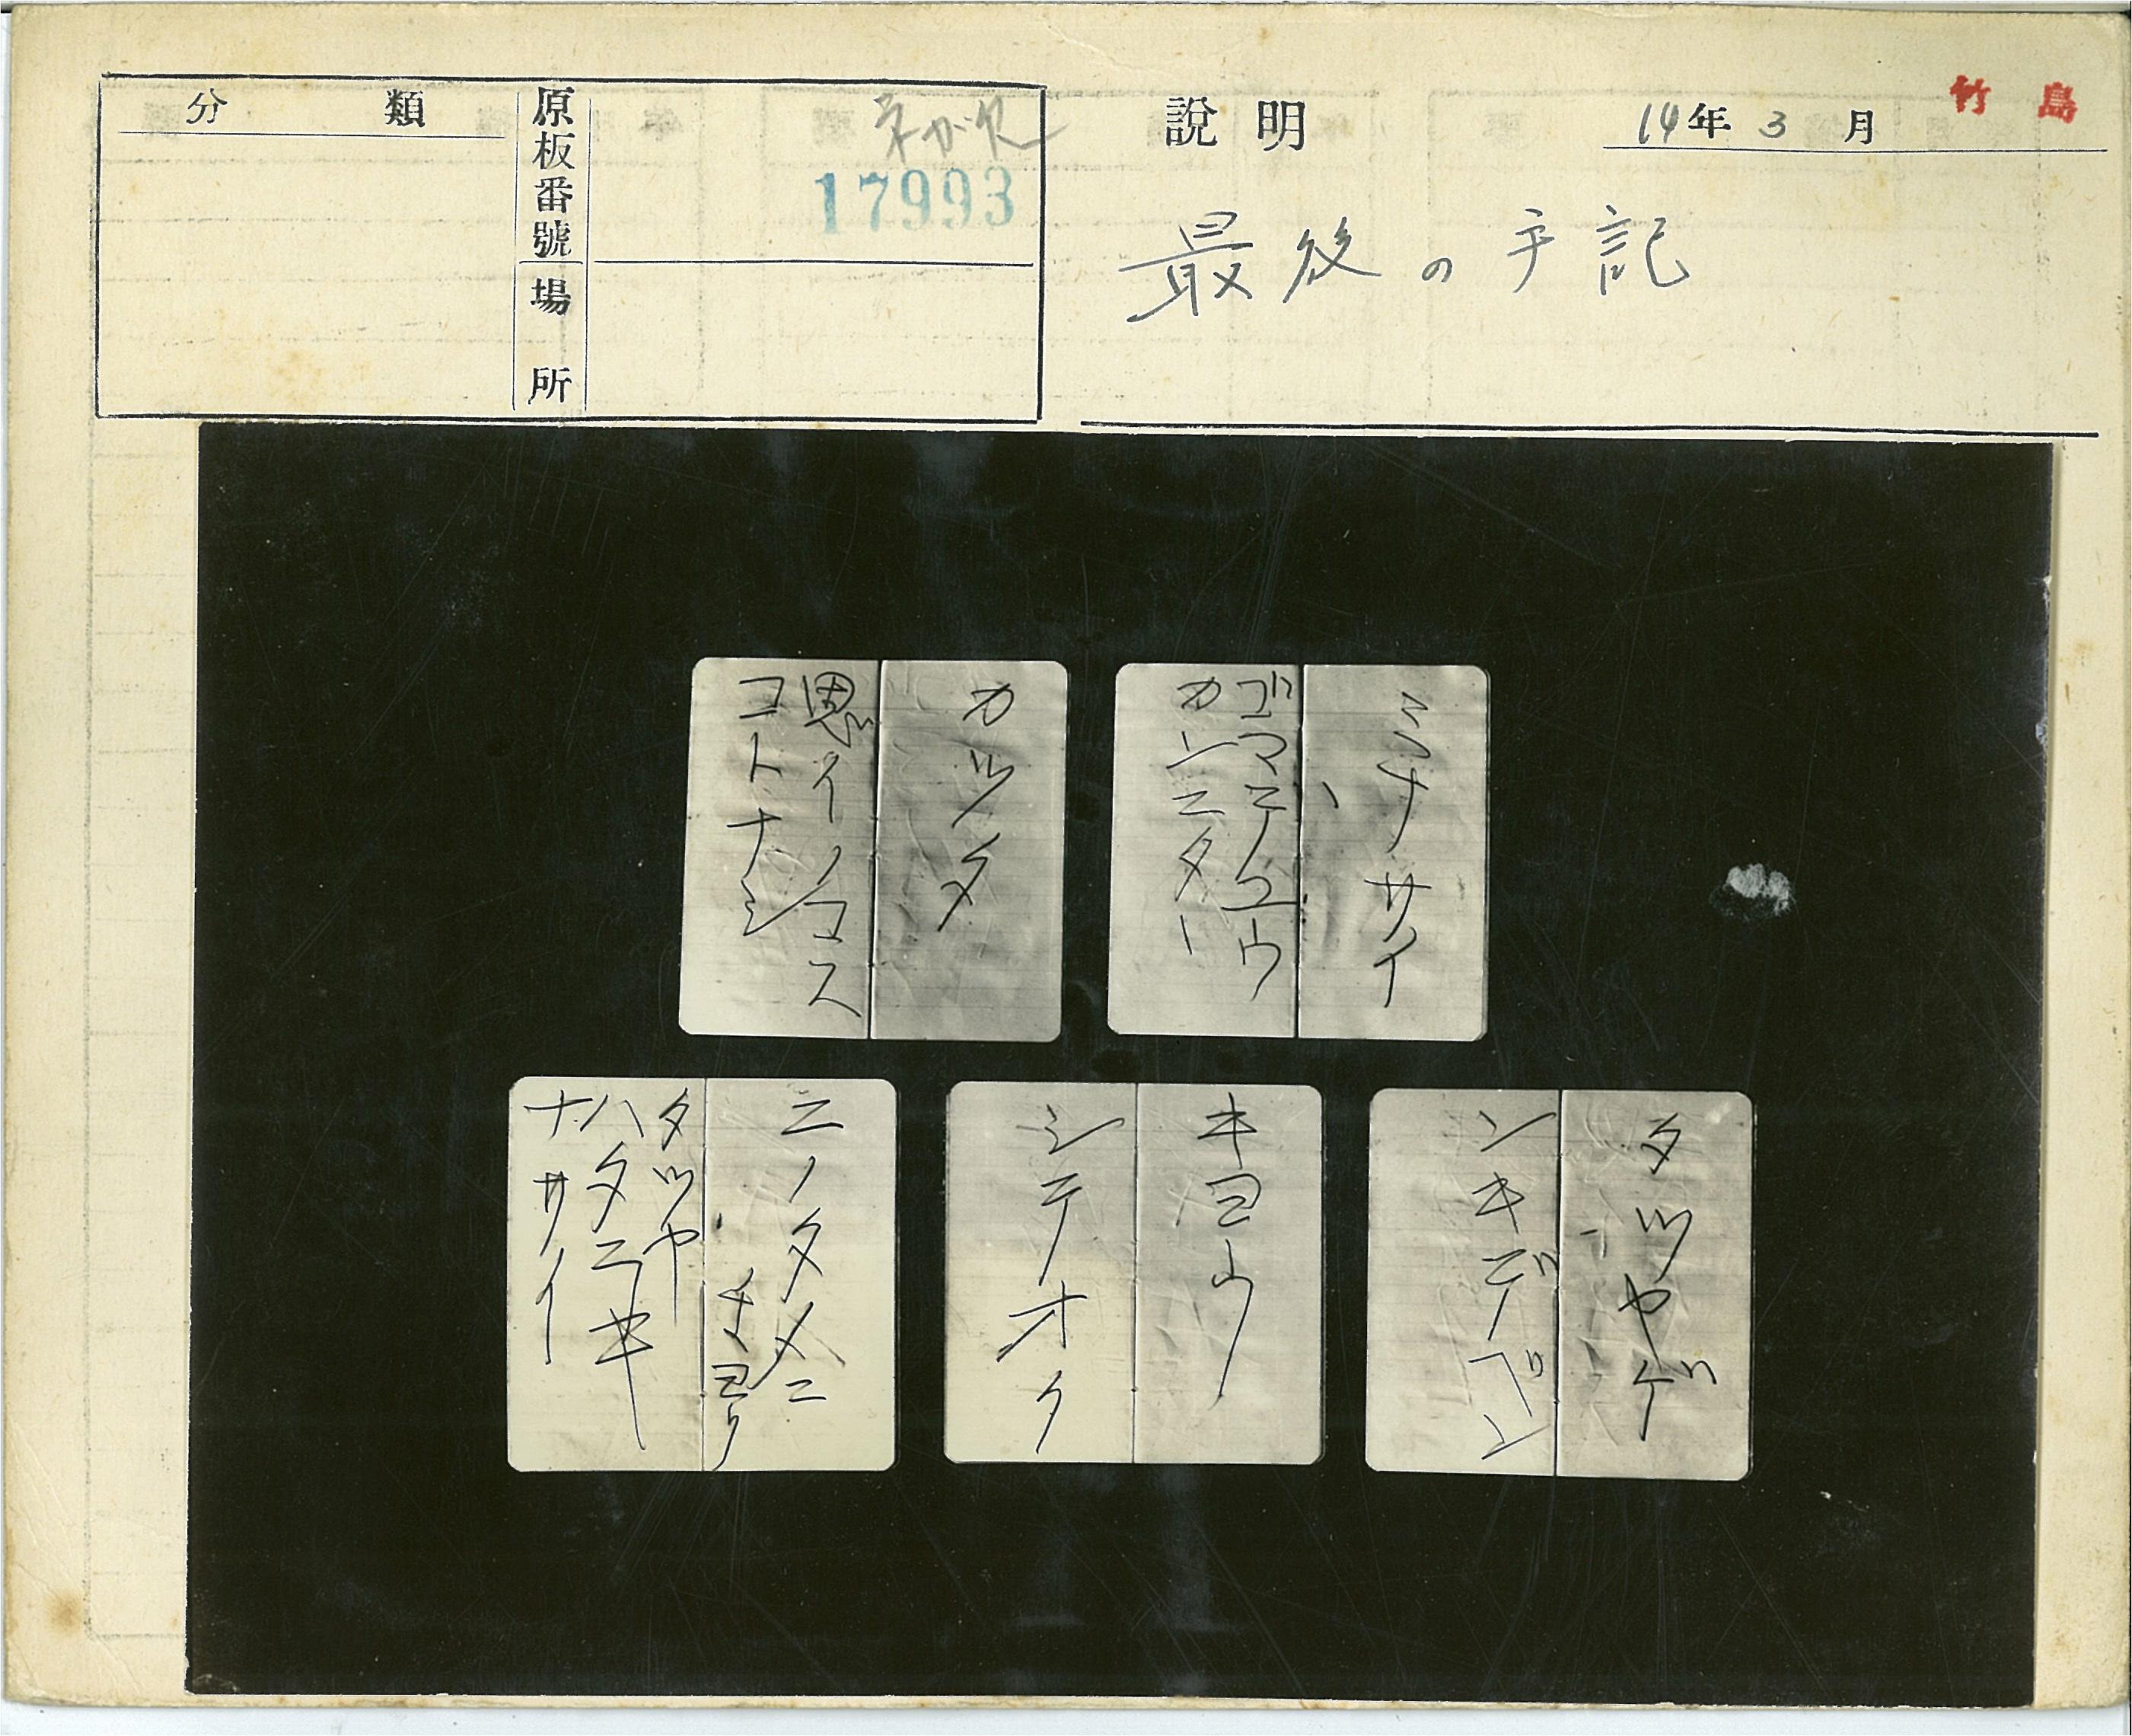 分類
原板番號
ネガ欠
17993
場所
説明
14年3月
竹島
最後の手記
ミナサイ
ゴマデユウ
カンニタヽ
カツタ
思イノコス
コトナシ
タツヤゲ
ンキデベン
キヨウ
シテオク
ニノタメニ
チヽヨリ
タツヤ
ハタラキ
ナサイ